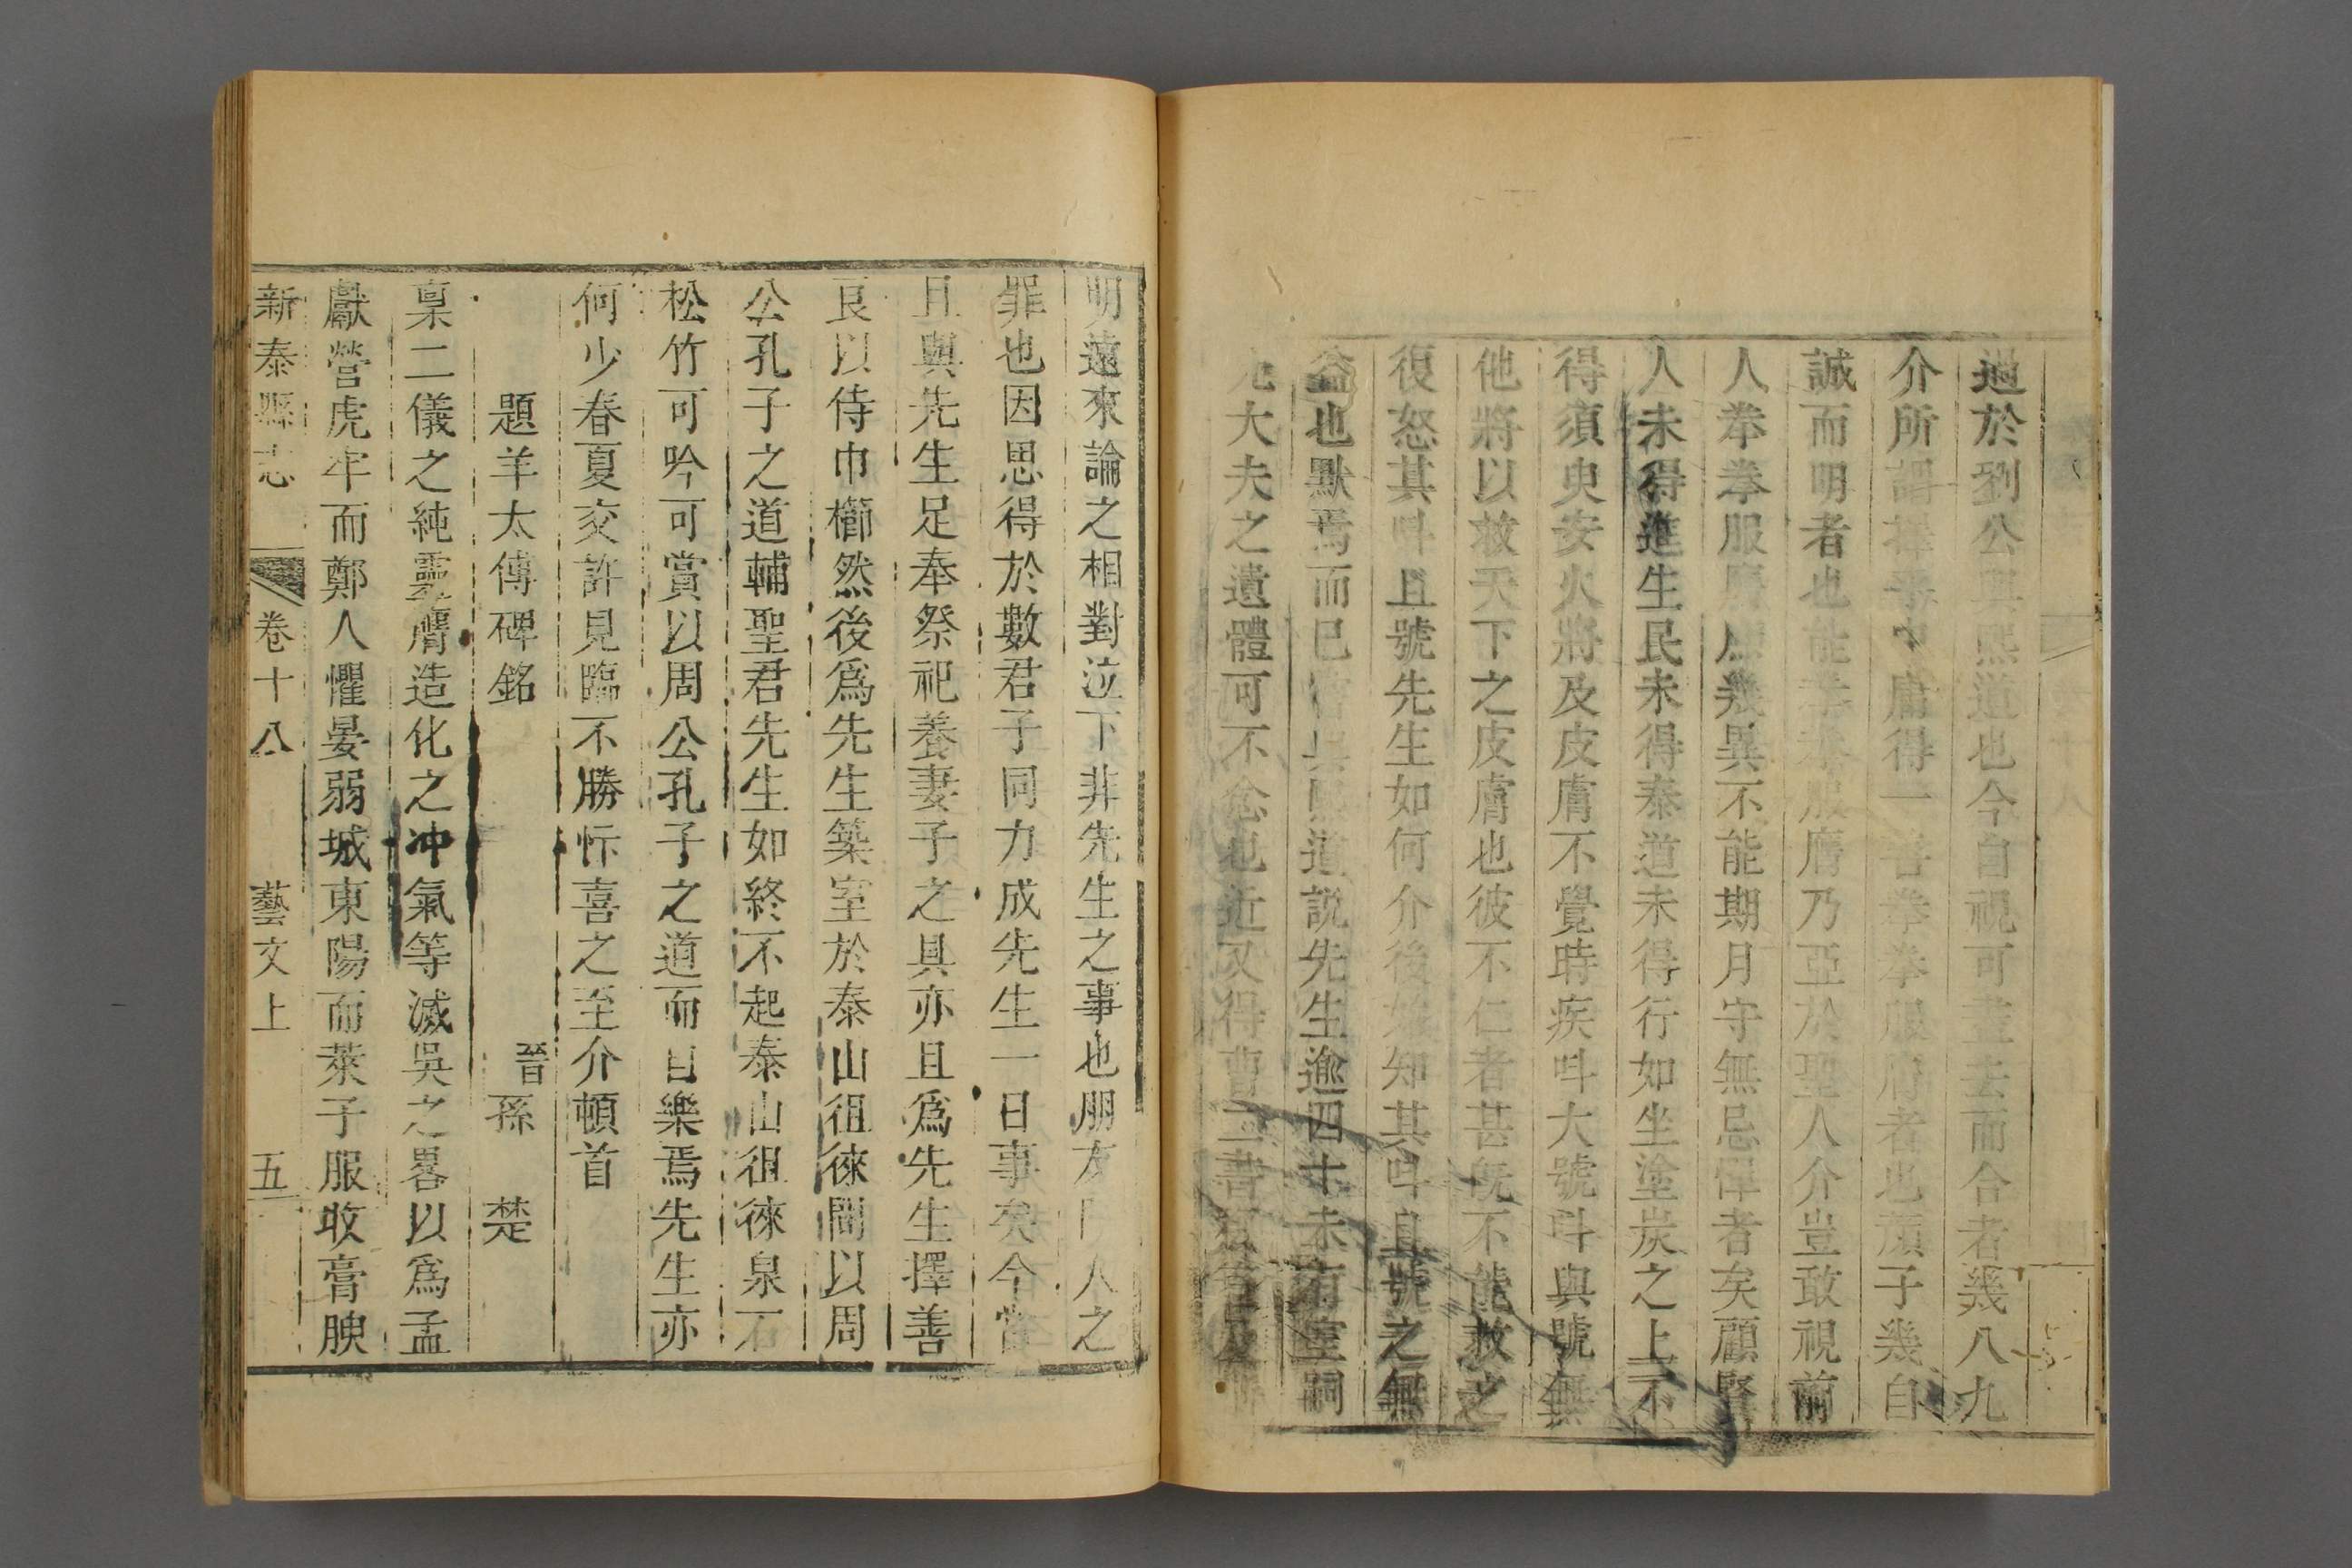 過於劉公與熙道也今自視可並去而合者幾八九
介所謂擇乎中庸得一善拳拳服膺者也顏子幾自
誠而明者也能拳拳服膺乃亞於聖人介豈敢視前
人拳拳服膺庶幾異不能期月守無忌憚者矣顧賢
人未得進生民未得泰道未得行如坐塗炭之上不
得須臾安火將及皮膚不覺時疾呌大號呌與號無
他將以救天下之皮膚也彼不仁者甚旣不能救之
復怒其呌且號先生如何介後始知其呌且號之無
益也默焉而已 熙道說先生逾四十未有室嗣
先大夫之遺體可不念也近又得曹二書
明遠來論之相對泣下非先生之事也朋友門人之
罪也因思得於數君子同力成先生一日事矣今當
且與先生足奉祭祀養妻子之具亦且爲先生擇善
良以侍巾櫛然後爲先生築室於泰山徂徠間以周
公孔子之道輔聖君先生如終不起泰山徂徠泉石
松竹可吟可賞以周公孔子之道而自樂焉先生亦
何少春夏交許見臨不勝忻喜之至介頓首
題羊太傅碑銘 晉孫 楚
稟二儀之純靈膺造化之冲氣等滅吳之畧以爲孟
獻營虎牢而鄭人懼晏弱城東陽而萊子服收膏腴
新泰縣志 卷十八 藝文上 五